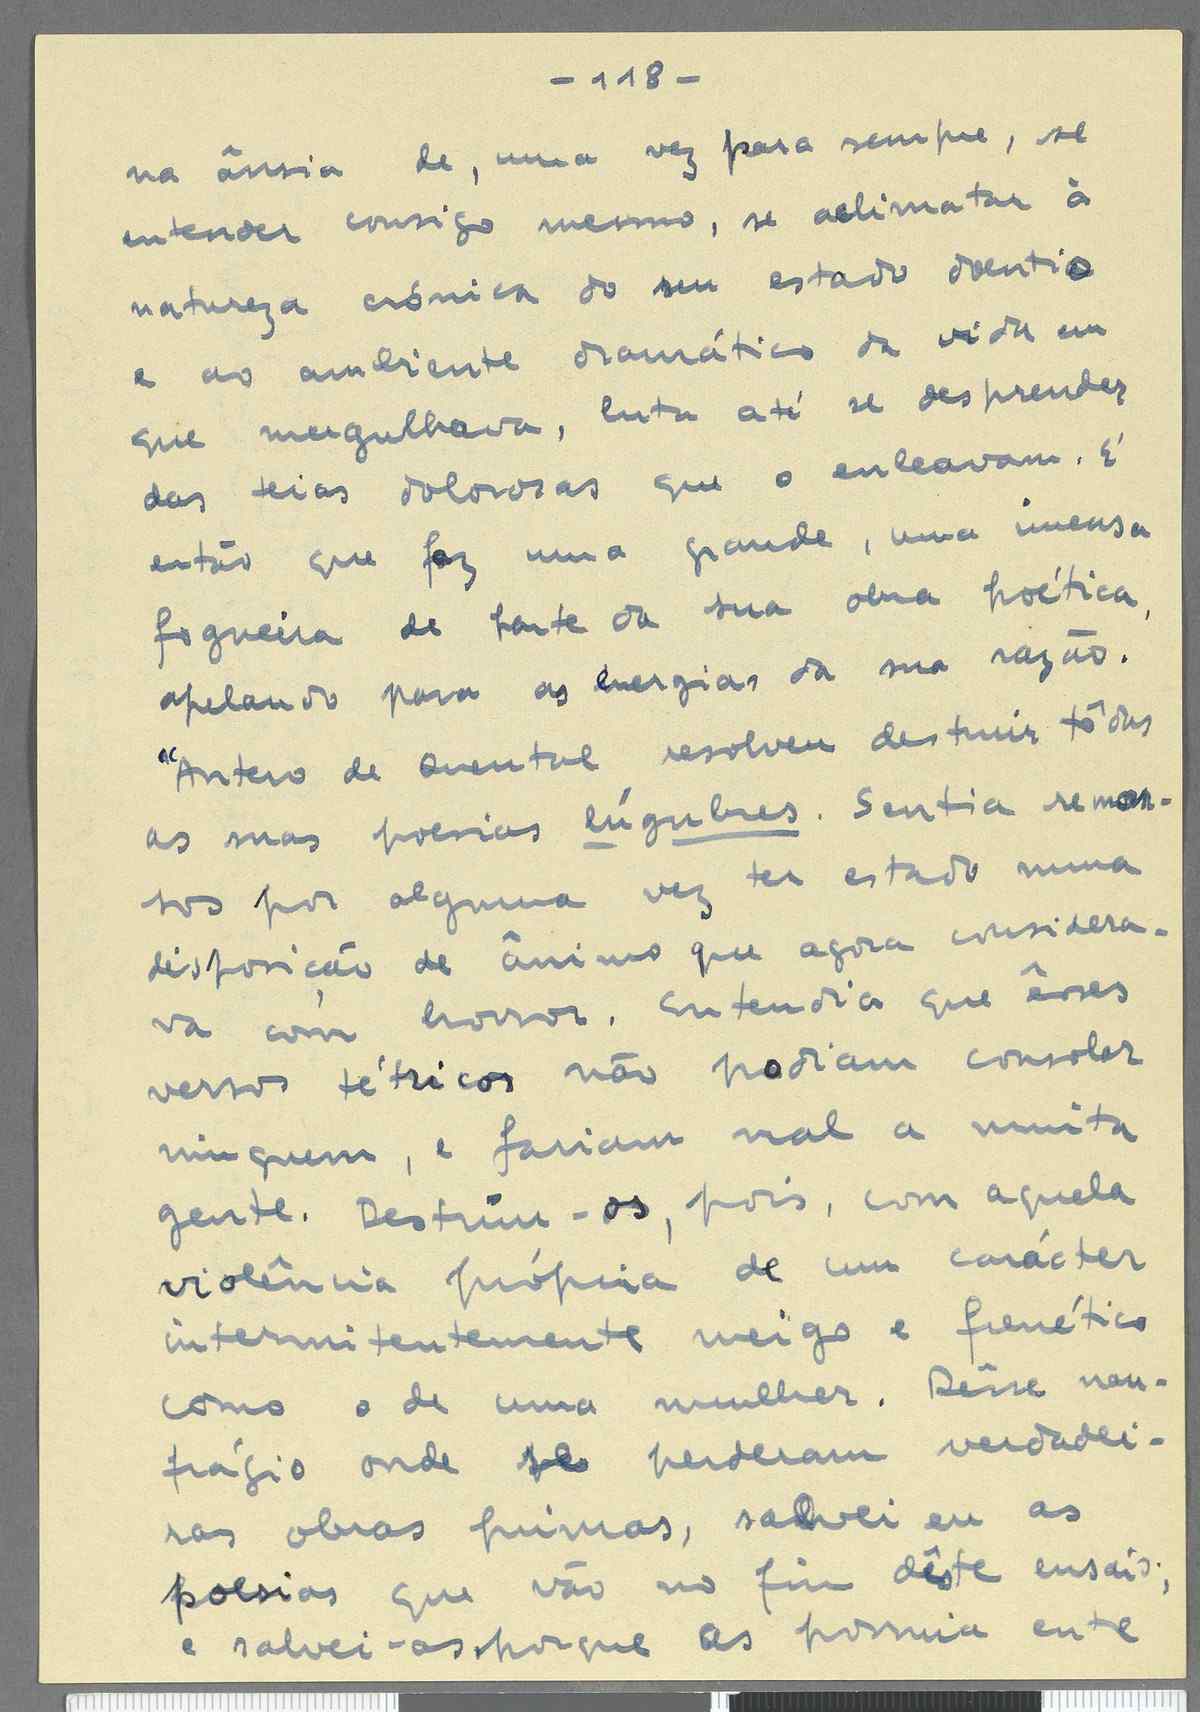 - 118 -
na ânsia de, uma vez para sempre, se
entender consigo mesmo, se aclimatar à
natureza crónica do seu estado doentio
e ao ambiente dramático da vida em
que mergulhava, luta até se desprender
das teias dolorosas que o enleavam. E'
então que faz uma grande, uma imensa
fogueira de parte da sua obra poética,
apelando para as energias da sua razão.
"Antero de Quental resolveu destruir tôdas
as suas poesias lúgubres. Sentia remor-
sos por alguma vez ter estado numa
disposição de ânimo que agora considera-
va com horror. Entendia que êsses
versos tétricos não podiam consolar
ninguem, e fariam mal a muita
gente. Destruíu-os, pois, com aquela
violência própria de um carácter
intermitentemente meigo e frenético
como o de uma mulher. Dêsse nau-
frágio onde se perderam verdadei-
ras obras primas, salvei eu as
poesias que vão no fim dêste ensaio;
e salvei-as, porque as possuia entre